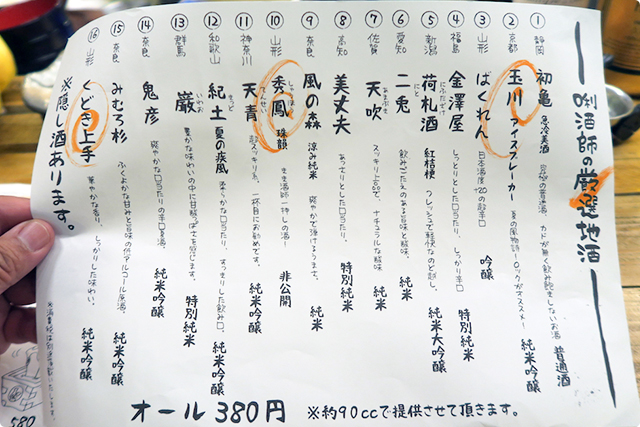 唎酒師の厳選地酒
① 静岡 初亀 急冷美酒 カドが無く飲み飽きしないお酒 普通酒
② 京都 玉川 アイスブレーカー 夏の風物詩！ロックがオススメ！
③ 山形 ばくれん 日本酒度+20の超辛口 吟醸
④ 福島 金澤屋 しっとりとした口当たり、しっかり辛口 特別純米
⑤ 新潟 荷札酒 にふだざけ 紅桔梗 フレッシュで軽快なのど越し。 純米大吟醸
⑥ 愛知 二兎 にと 飲みごたえのある旨味と酸味。 純米
⑦ 佐賀 天吹 あまぶき スッキリ上品で、ナチュラルな酸味 純米
⑧ 高知 美丈夫 あっさりとした口当たり。 特別純米
⑨ 奈良 風の森 涼み純米 爽やかで弾けるうます。 純米
⑩ 山形 秀鳳 しゅうほう 珠韻 きき酒師一押しの酒！ 非公開
⑪ 神奈川 天青 てんせい 超スッキリ系。一杯目にお勧めです。 純米吟醸
⑫ 和歌山 紀土 きっど 夏の疾風 柔らかな口当たり、すっきりした飲み口。 純米吟醸
⑬ 群馬 巌 いわお 豊かな味わいの中に甘酸っぱさを感じます。 特別純米
⑭ 奈良 鬼彦 爽やかな口当たりの辛口夏酒。 純米吟醸
⑮ 奈良 みむろ杉 ふくよかな甘みと旨味の低アルコール原酒。 純米吟醸
⑯ 山形 くどき上手 華やかな香り、しっかりした味わい。 純米吟醸
※隠し酒あります。
※消費税は別途頂戴いたします。
オール380円 ※約90ccで提供させて頂きます。
580